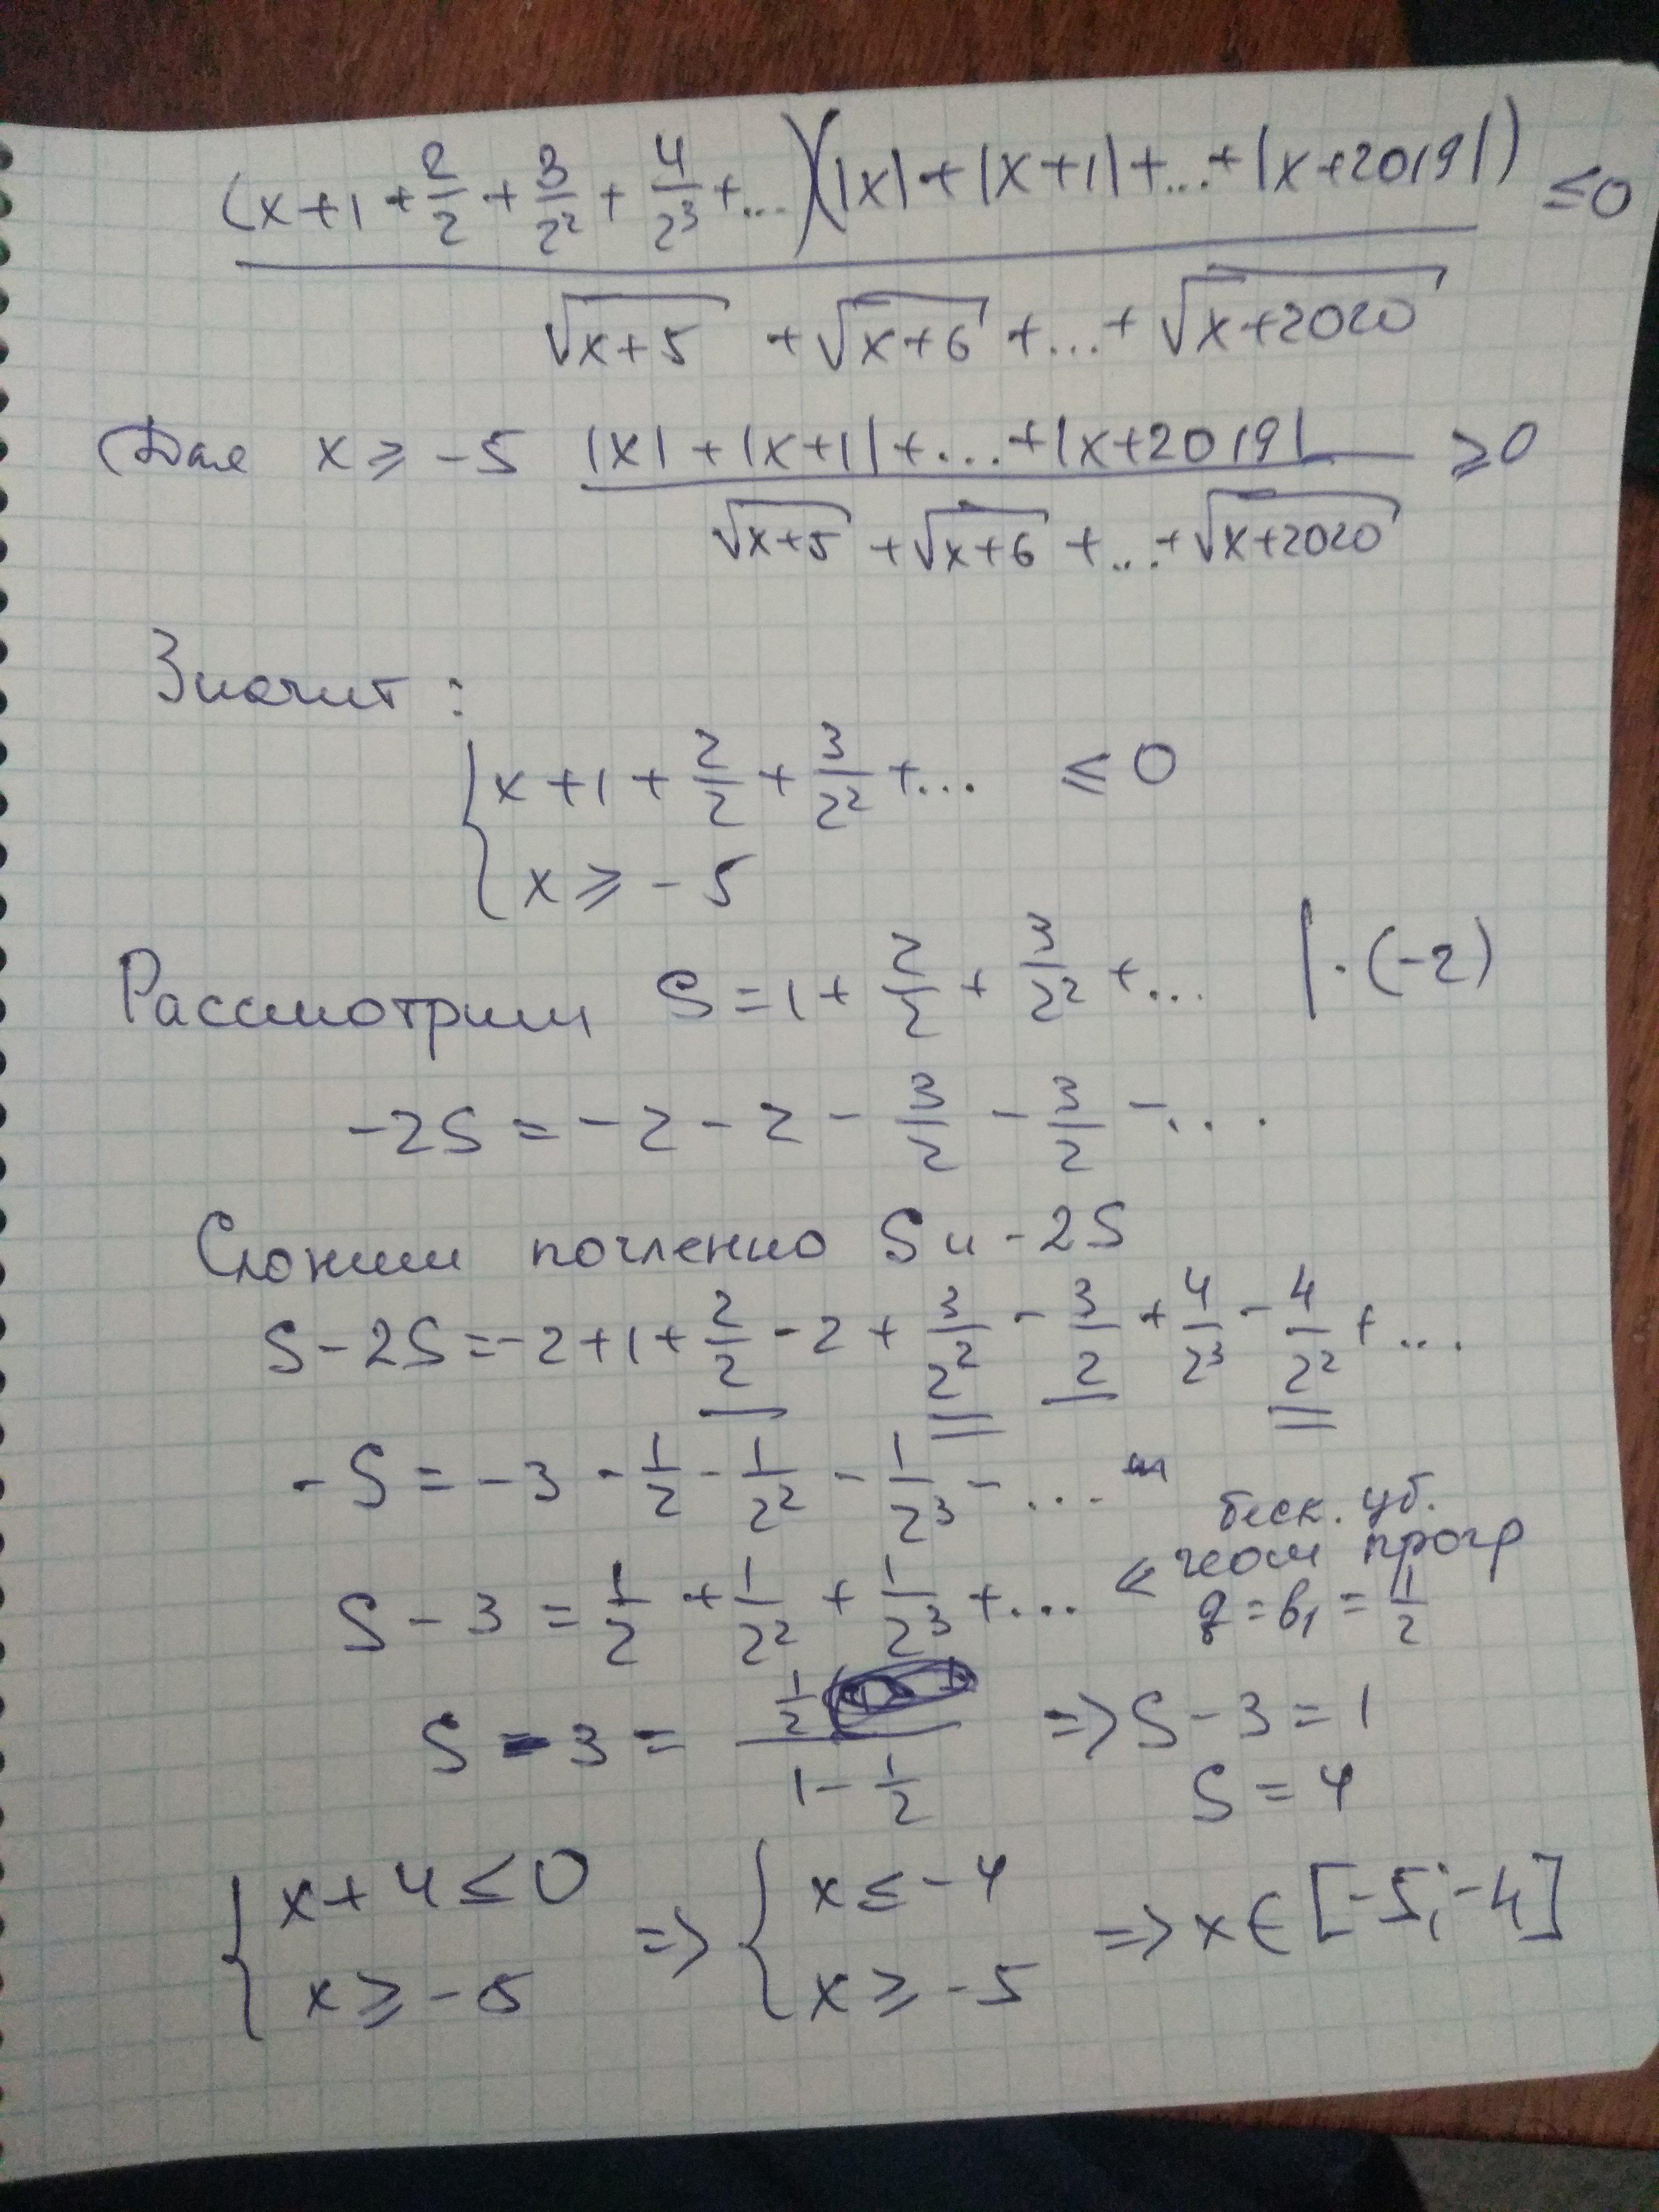 (x+1+2/2+3/2²+4/2³+...)(|x|+|x+1|+...+|x+2019|) ≤0
√x+5 +√x+6 +...+√x+2020
Для x≥-5 |x|+|x+1|+...+|x+2019| ≥0
√x+5 +√x+6 +...+√x+2020
Значит:
x+1+2/2+3/2²+... ≤0
x≥-5
Рассмотрим S=1+2/2+3/2²+... |·(-2)
-2S=-2-2-3/2-3/2-...
Сложим почленно S и -2S
S-2S=-2+1+2/2-2+3/2²-3/2+4/2³-4/2²+...
-S=-3-1/2-1/2²-1/2³-...
беск. уб.
геом прогр
S-3=1/2+1/2²+1/2³+... q=b₁=1/2
S-3=1/2/1-1/2 =>S-3=1
S=4
{x+4≤0 => {x≤-4 =>x∈[-5;-4]
x≥-5 x≥-5